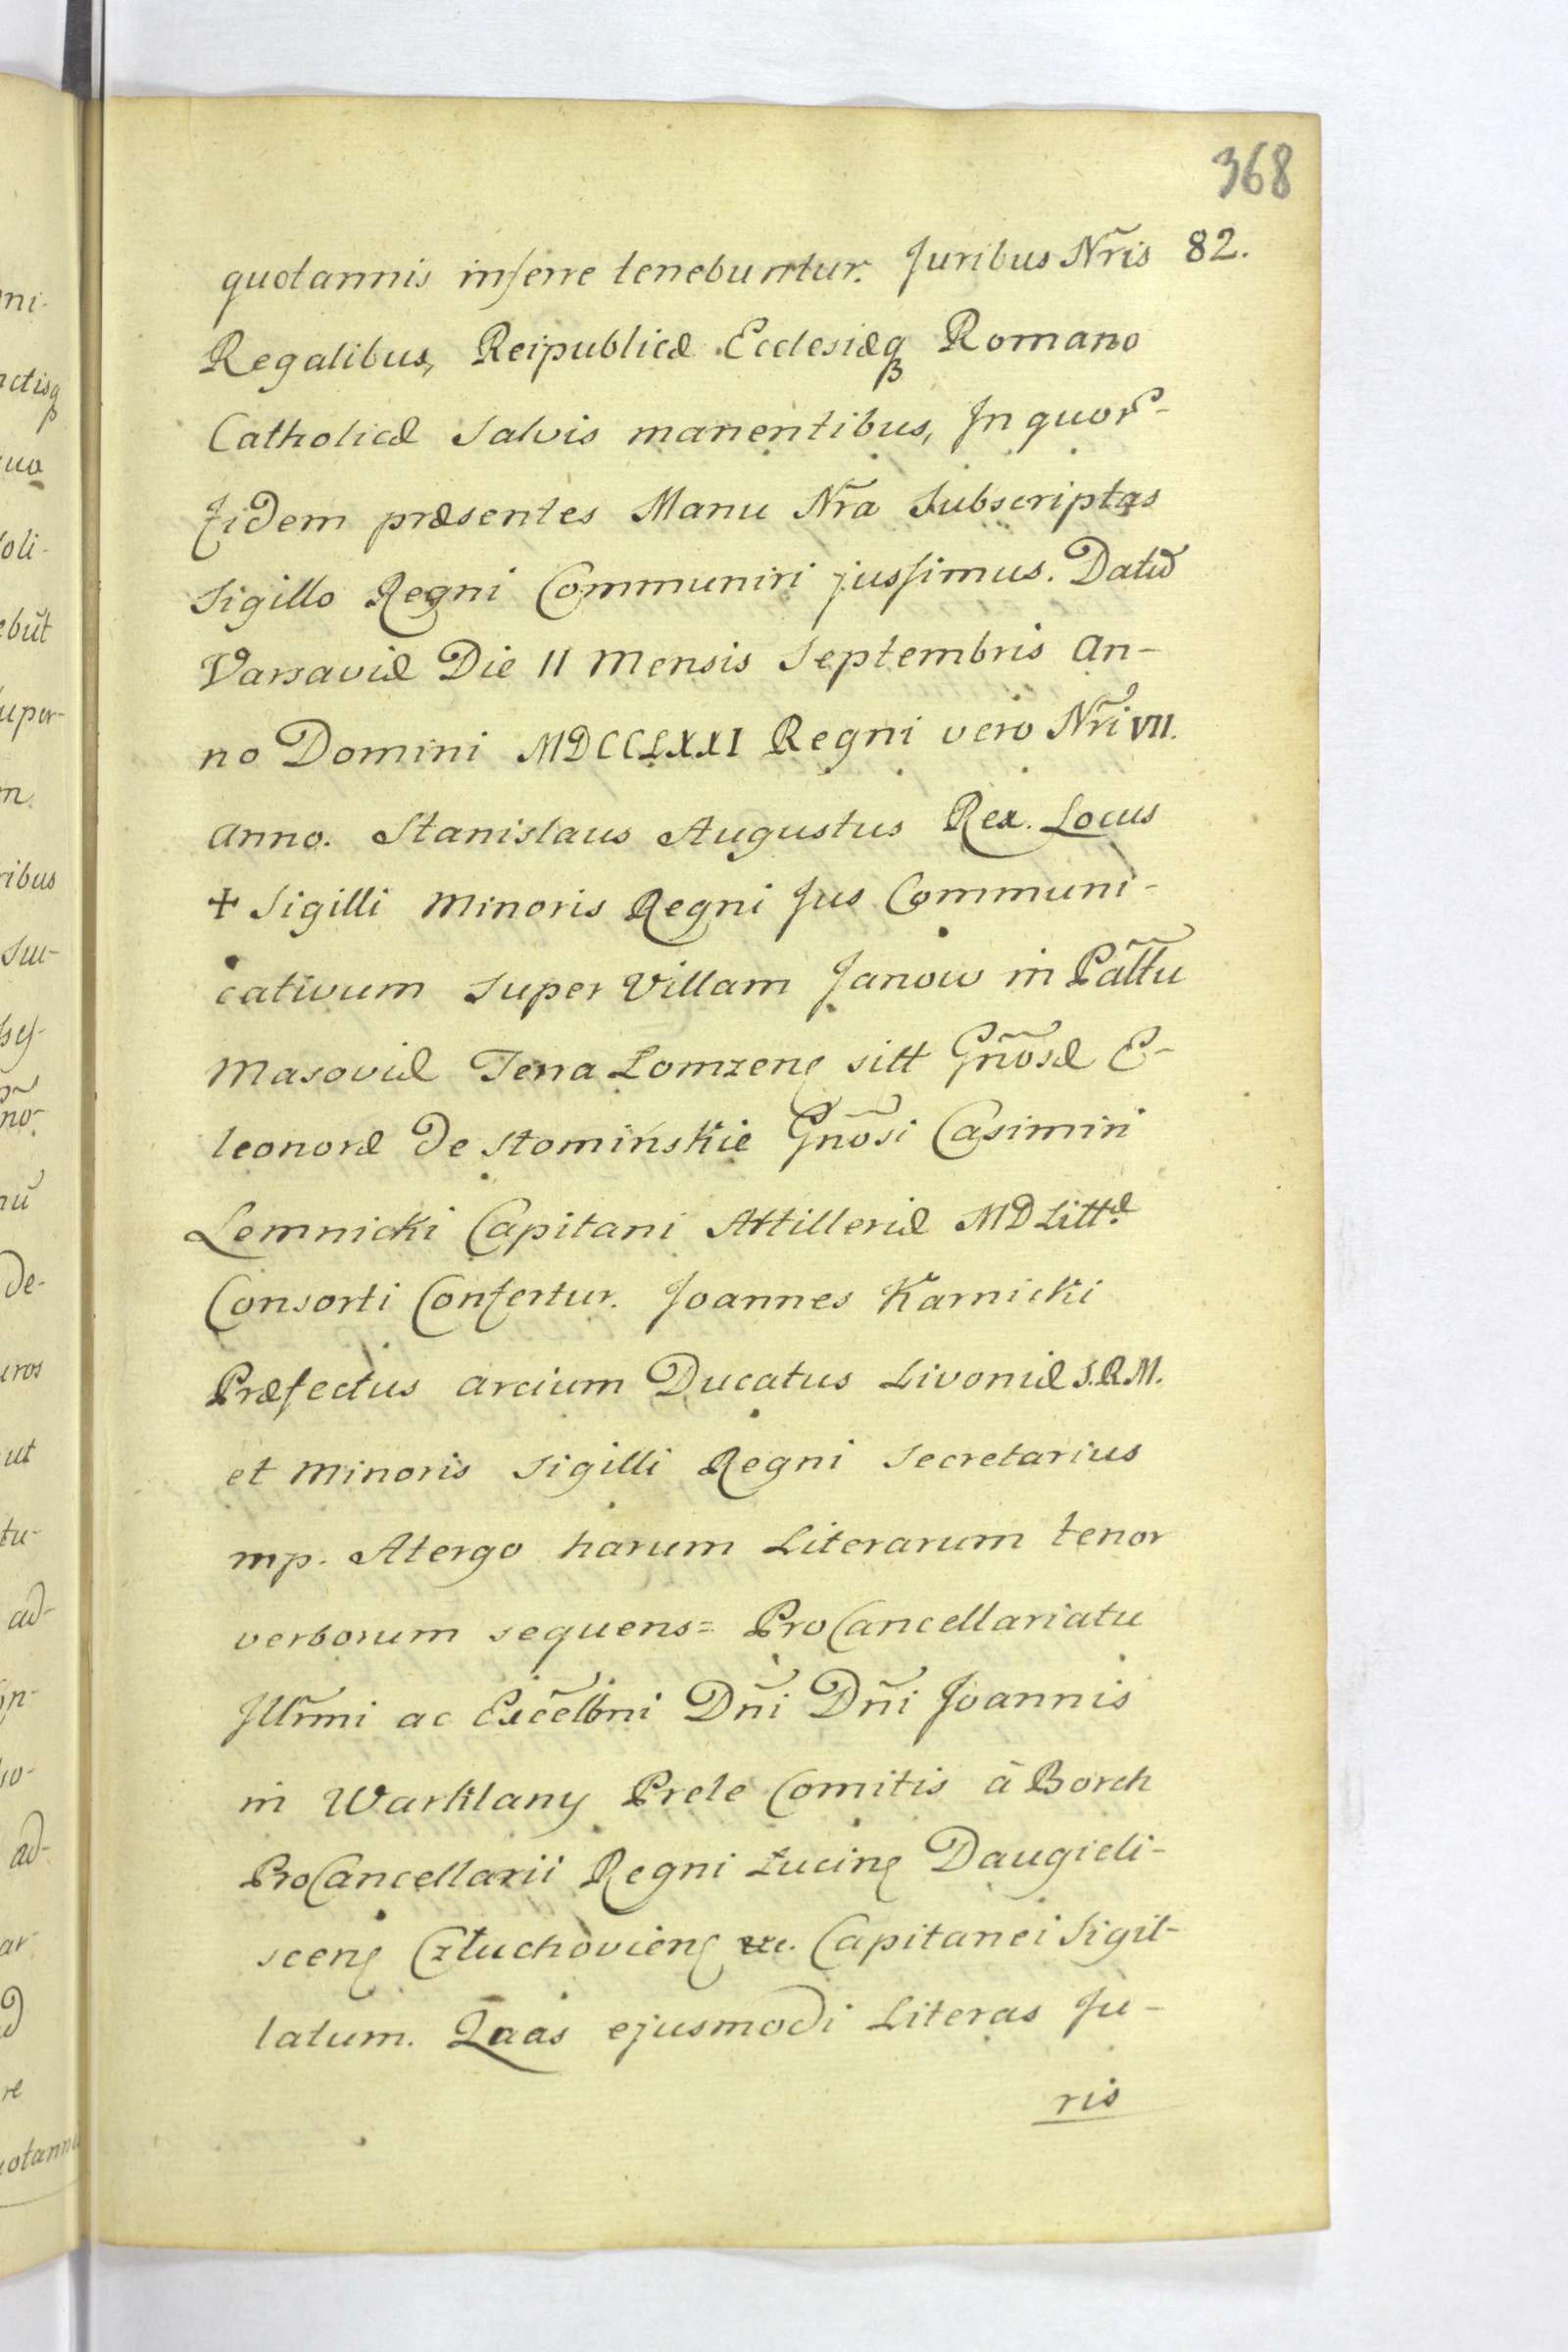 368
82.
quotannis inferre tenebuntur. Juribus Nr̃is
Regalibus, Reipublicæ Ecclesiæq Romano
Catholicæ Salvis manentibus, In quor̃-
fidem præsentes Manu Nr̃a Subscriptas
Sigillo Regni Communiri jussimus. Datũ
Varsaviæ Die 11 Mensis Septembris An-
no Domini MDCCLXXI Regni vero Nr̃i VII.
Anno. Stanislaus Augustus Rex. Locus
✝ Sigilli Minoris Regni Jus Communi-
cativum Super Villam Janow in Pal̃tu
Masoviæ Terra Lomzen sitt Gño̅sæ E-
leonoræ De Stominskie Gño̅si Casimiri
Lemnicki Capitani Attilleriæ MD Littæ
Consorti Confertur. Joannes Karnicki
Præfectus arcium Ducatus Livoniæ S.R.M.
et Minoris Sigilli Regni Secretarius
mp. Atergo harum Literarum tenor
verborum sequens= ProCancellariatu
Jllr̃mi ac Excellm̃i Dñi Dñi Joannis
in Warklany Prele Comitis à Borch
ProCancellarii Regni Łucin Daugieli-
scen Człuchovien etc. Capitanei Sigil-
latum. Quas ejusmodi Literas Ju-
ris
ni-
ctisq
quo
oli-
ebũt
uper-
m.
ribus
Su-
no
nũ
De-
uros
ut
tu-
ad-
in-
so-
ad-
ar
re
uotannis